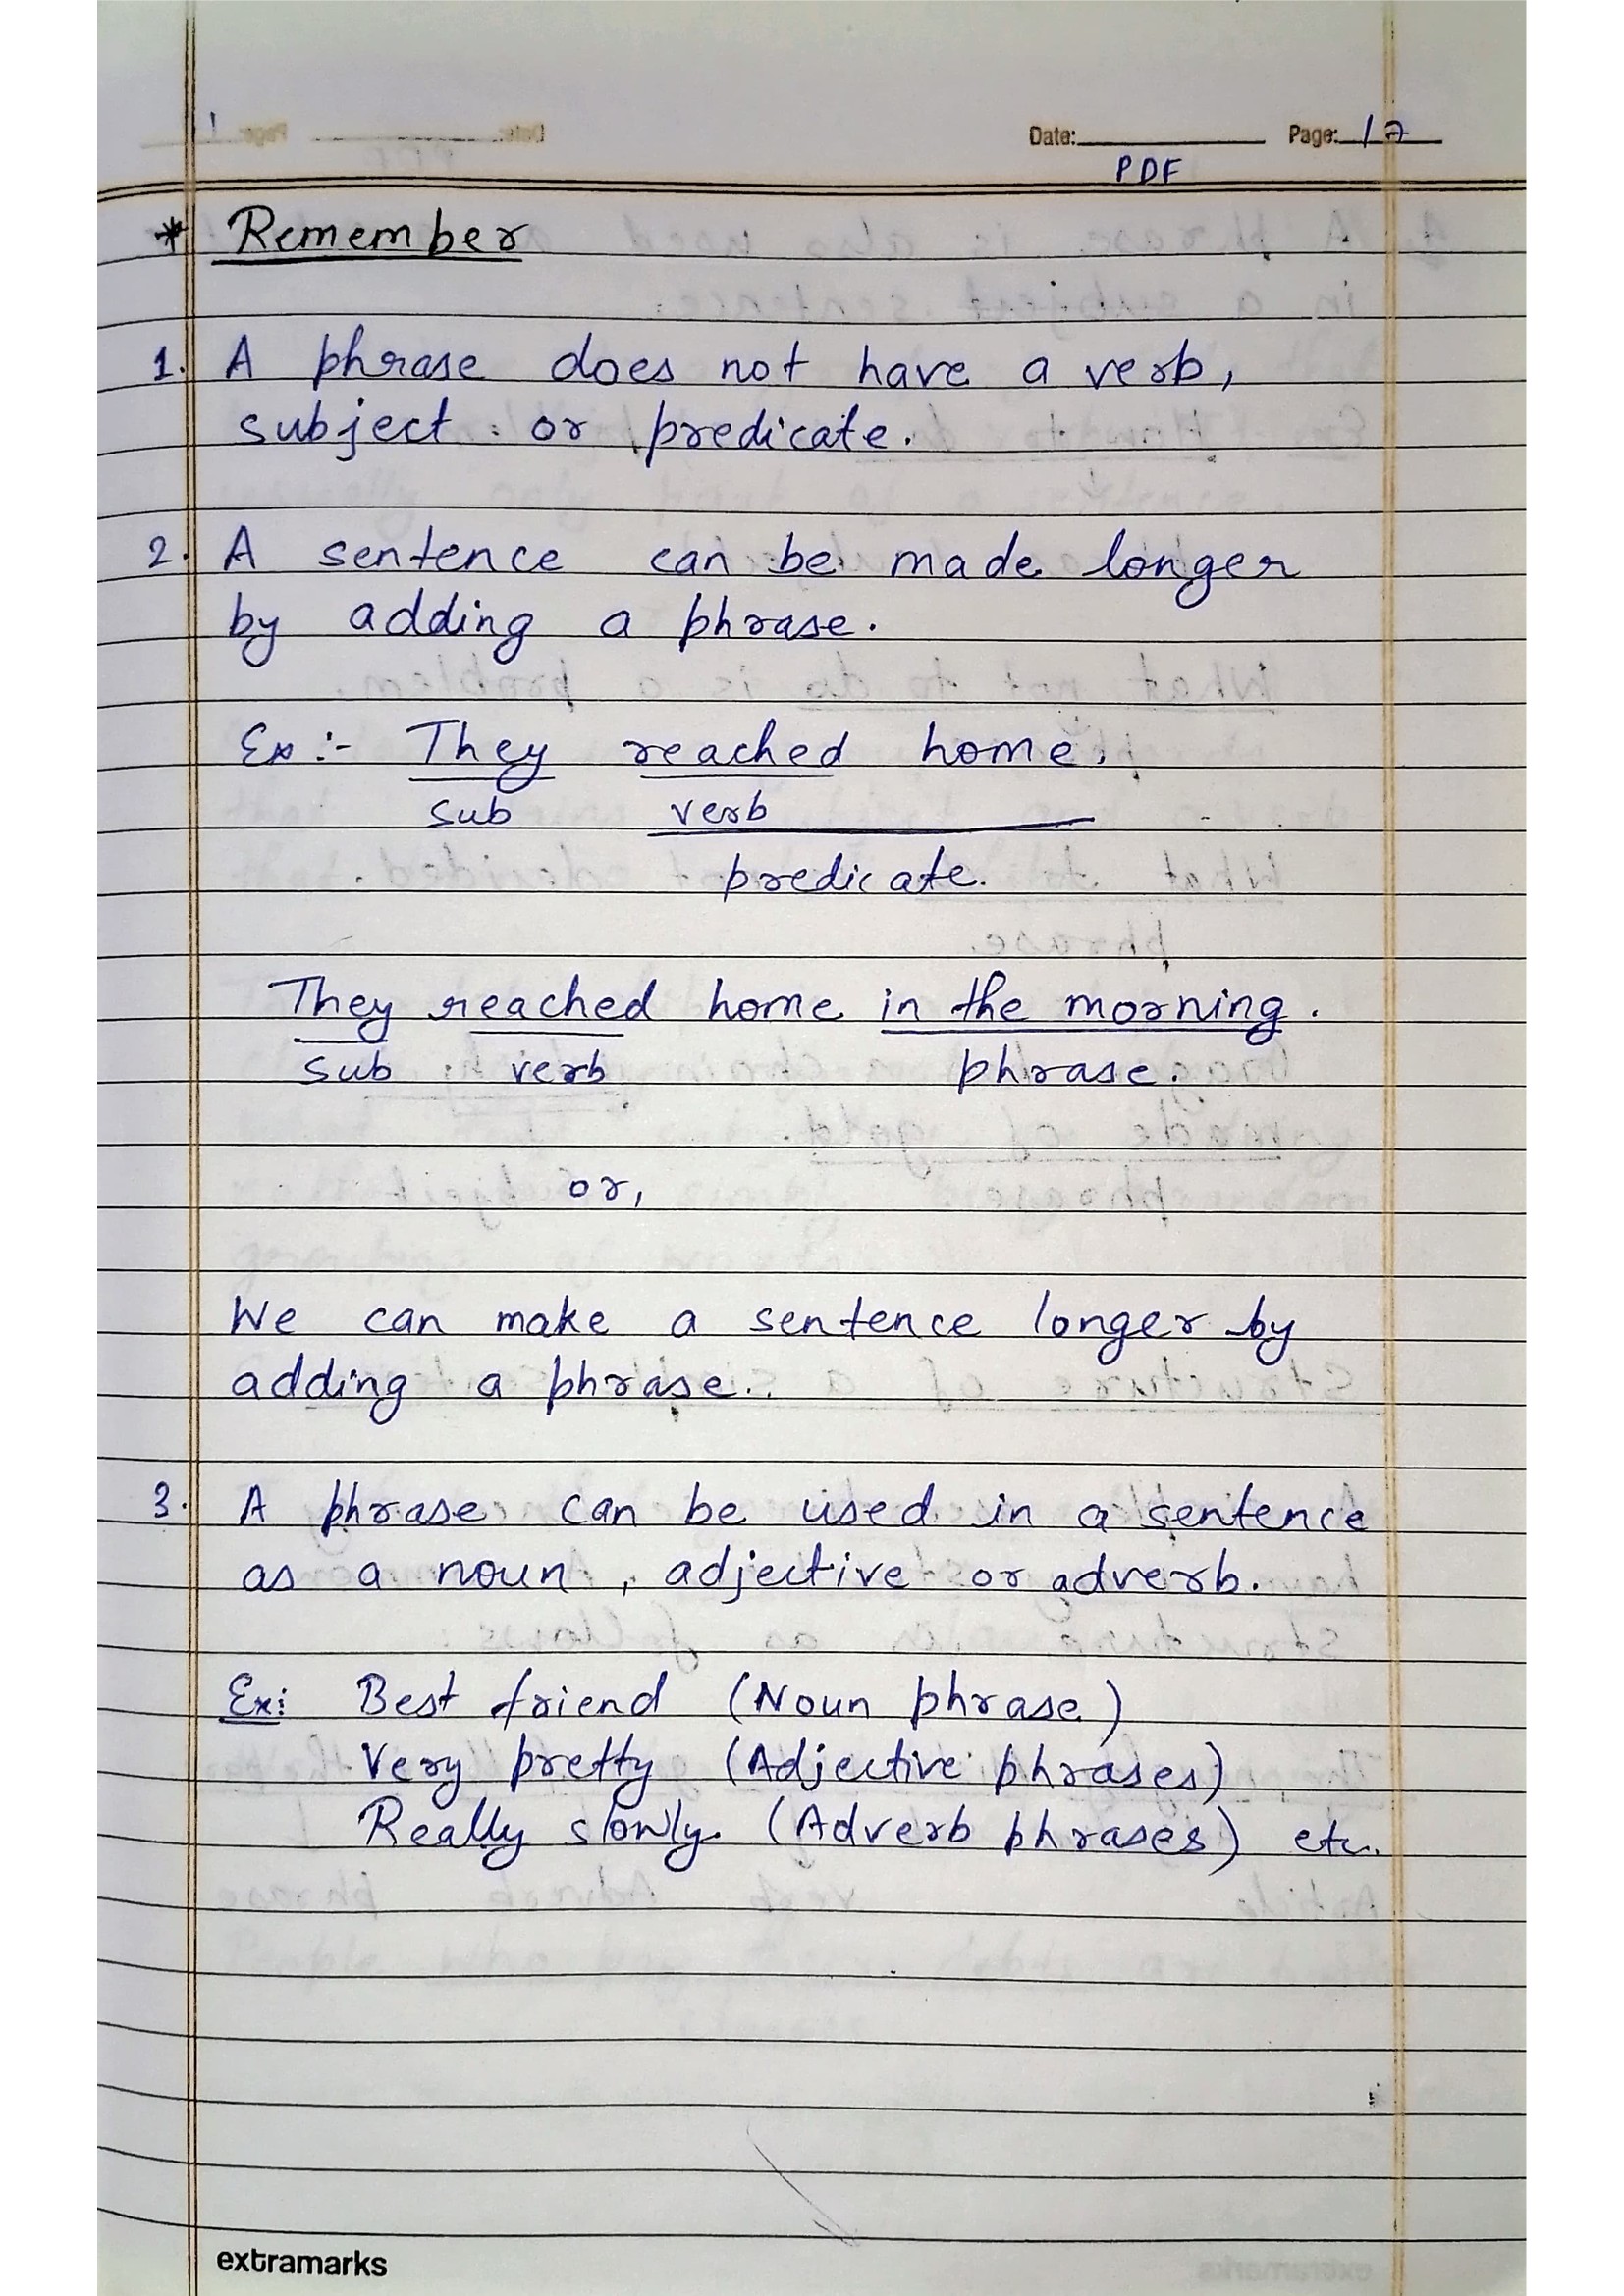 Date: Page: 17
PDF
* Remember
1. A phrase does not have a verb,
subject or predicate.
2. A sentence can be made longer
by adding a phrase.
Ex :- They reached home.
sub verb
predicate.
They reached home in the morning.
sub verb phrase.
or,
We can make a sentence longer by
adding a phrase.
3. A phrase can be used in a sentence
as a noun, adjective or adverb.
Ex: Best friend (Noun phrase)
Very pretty (Adjective phrases)
Really slowly (Adverb phrases) etc.
extramarks